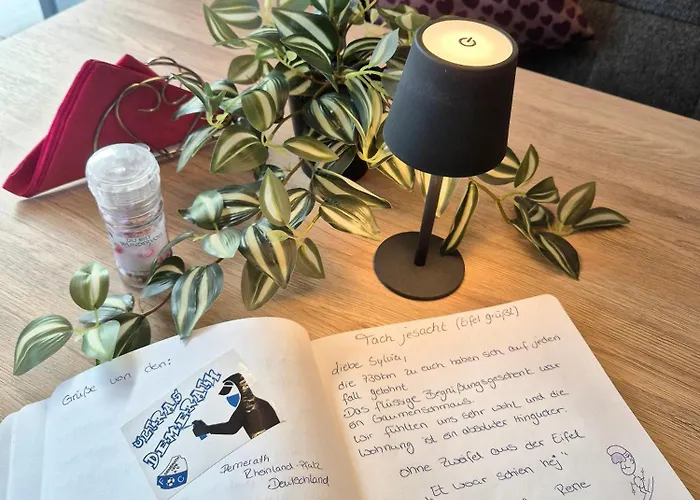 DU BIST
WUNDERVOLL
Grüße von den:
ULTRAS
DEMERATH
Demerath
Rheinland-Pfalz
Deutschland
Tach jesacht (Eifel grüßt)
diebe Sylvia,
die 730km zu euch haben sich auf jeden
fall gelohnt.
Das flüssige Begrüßungsgeschenk war
ein Gaumenschmaus.
Wir fühlten uns sehr wohl und die
Wohnung ist ein absoluter Hingucker.
Ohne Zweifel aus der Eifel
"Et woar schien hej"
Rene